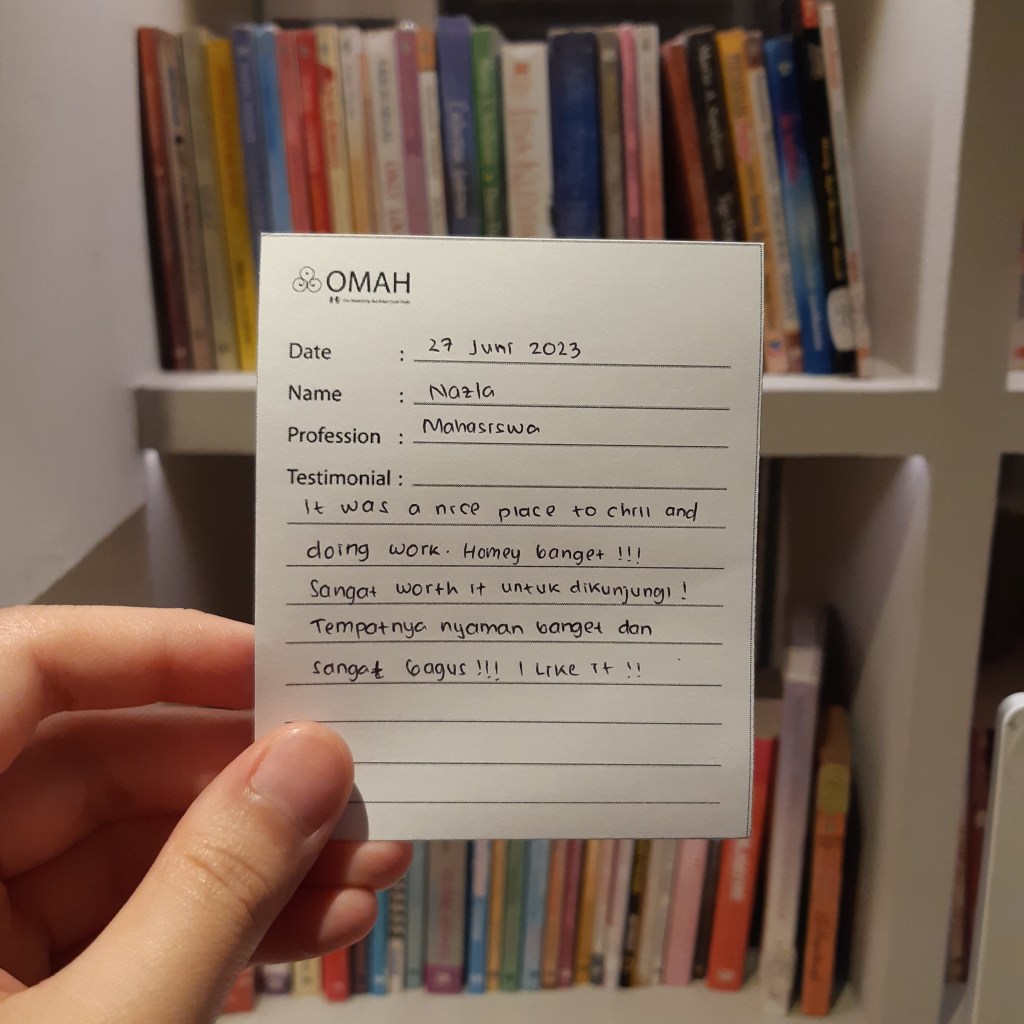 OMAH
Date : 27 Juni 2023
Name : Nazla
Profession : Mahasiswa
Testimonial :
It was a nice place to chill and
doing work. Homey banget !!!
Sangat worth it untuk dikunjungi !
Tempatnya nyaman banget dan
sangat bagus !!! I Like it !!